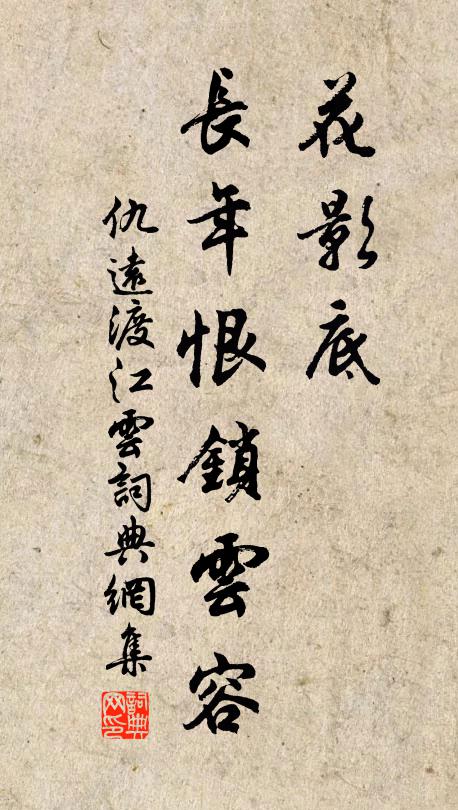 花影底
長年恨鎖雲容
仇遠渡江雲詞典網集
詞典網印